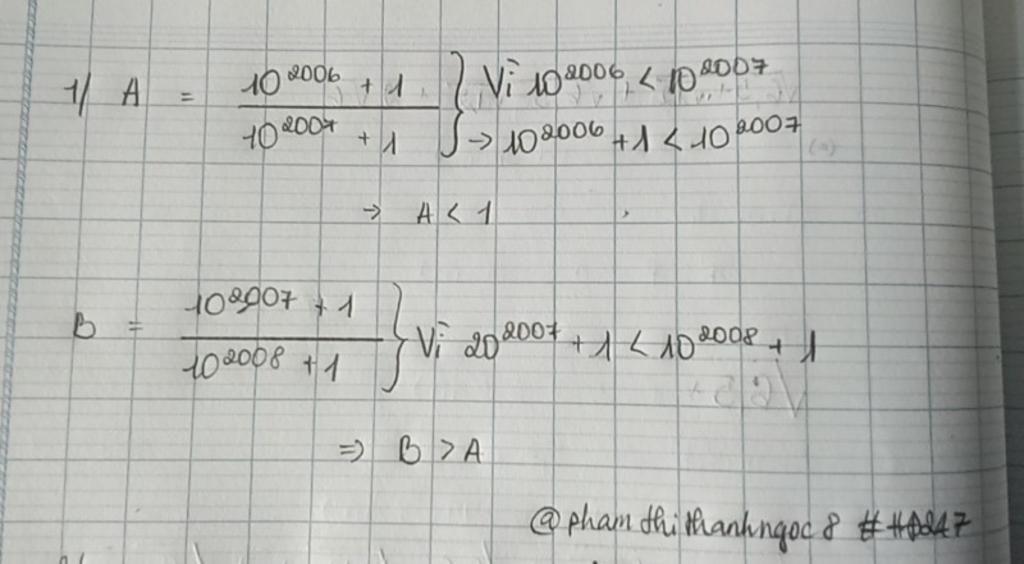 1/ A = \frac{10^{2006} + 1}{10^{2007} + 1} } Vì 10^{2006} < 10^{2007}
→ 10^{2006} + 1 < 10^{2007}
→ A < 1
B = \frac{10^{2007} + 1}{10^{2008} + 1} } Vì 20^{2007} + 1 < 10^{2008} + 1
⇒ B > A
@phamthithanhngoc8